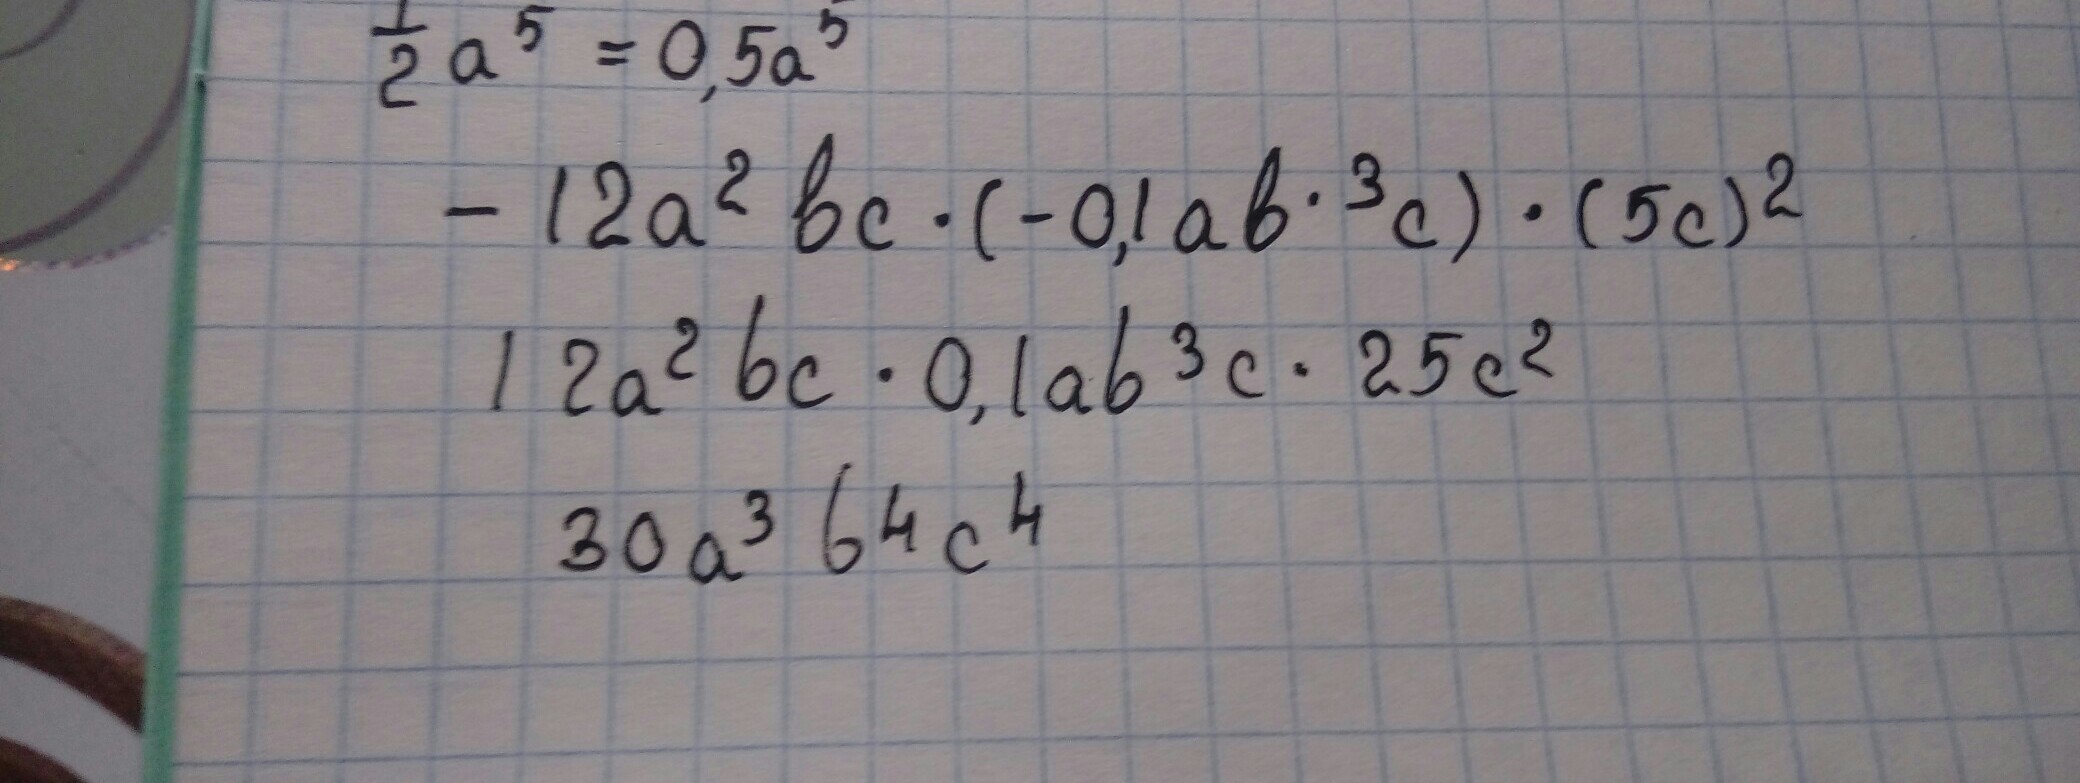 ½a⁵ = 0,5a⁵
-12a² bc · (-0,1ab · ³c) · (5c)²
12a² bc · 0,1ab³c · 25c²
30a³b⁴c⁴